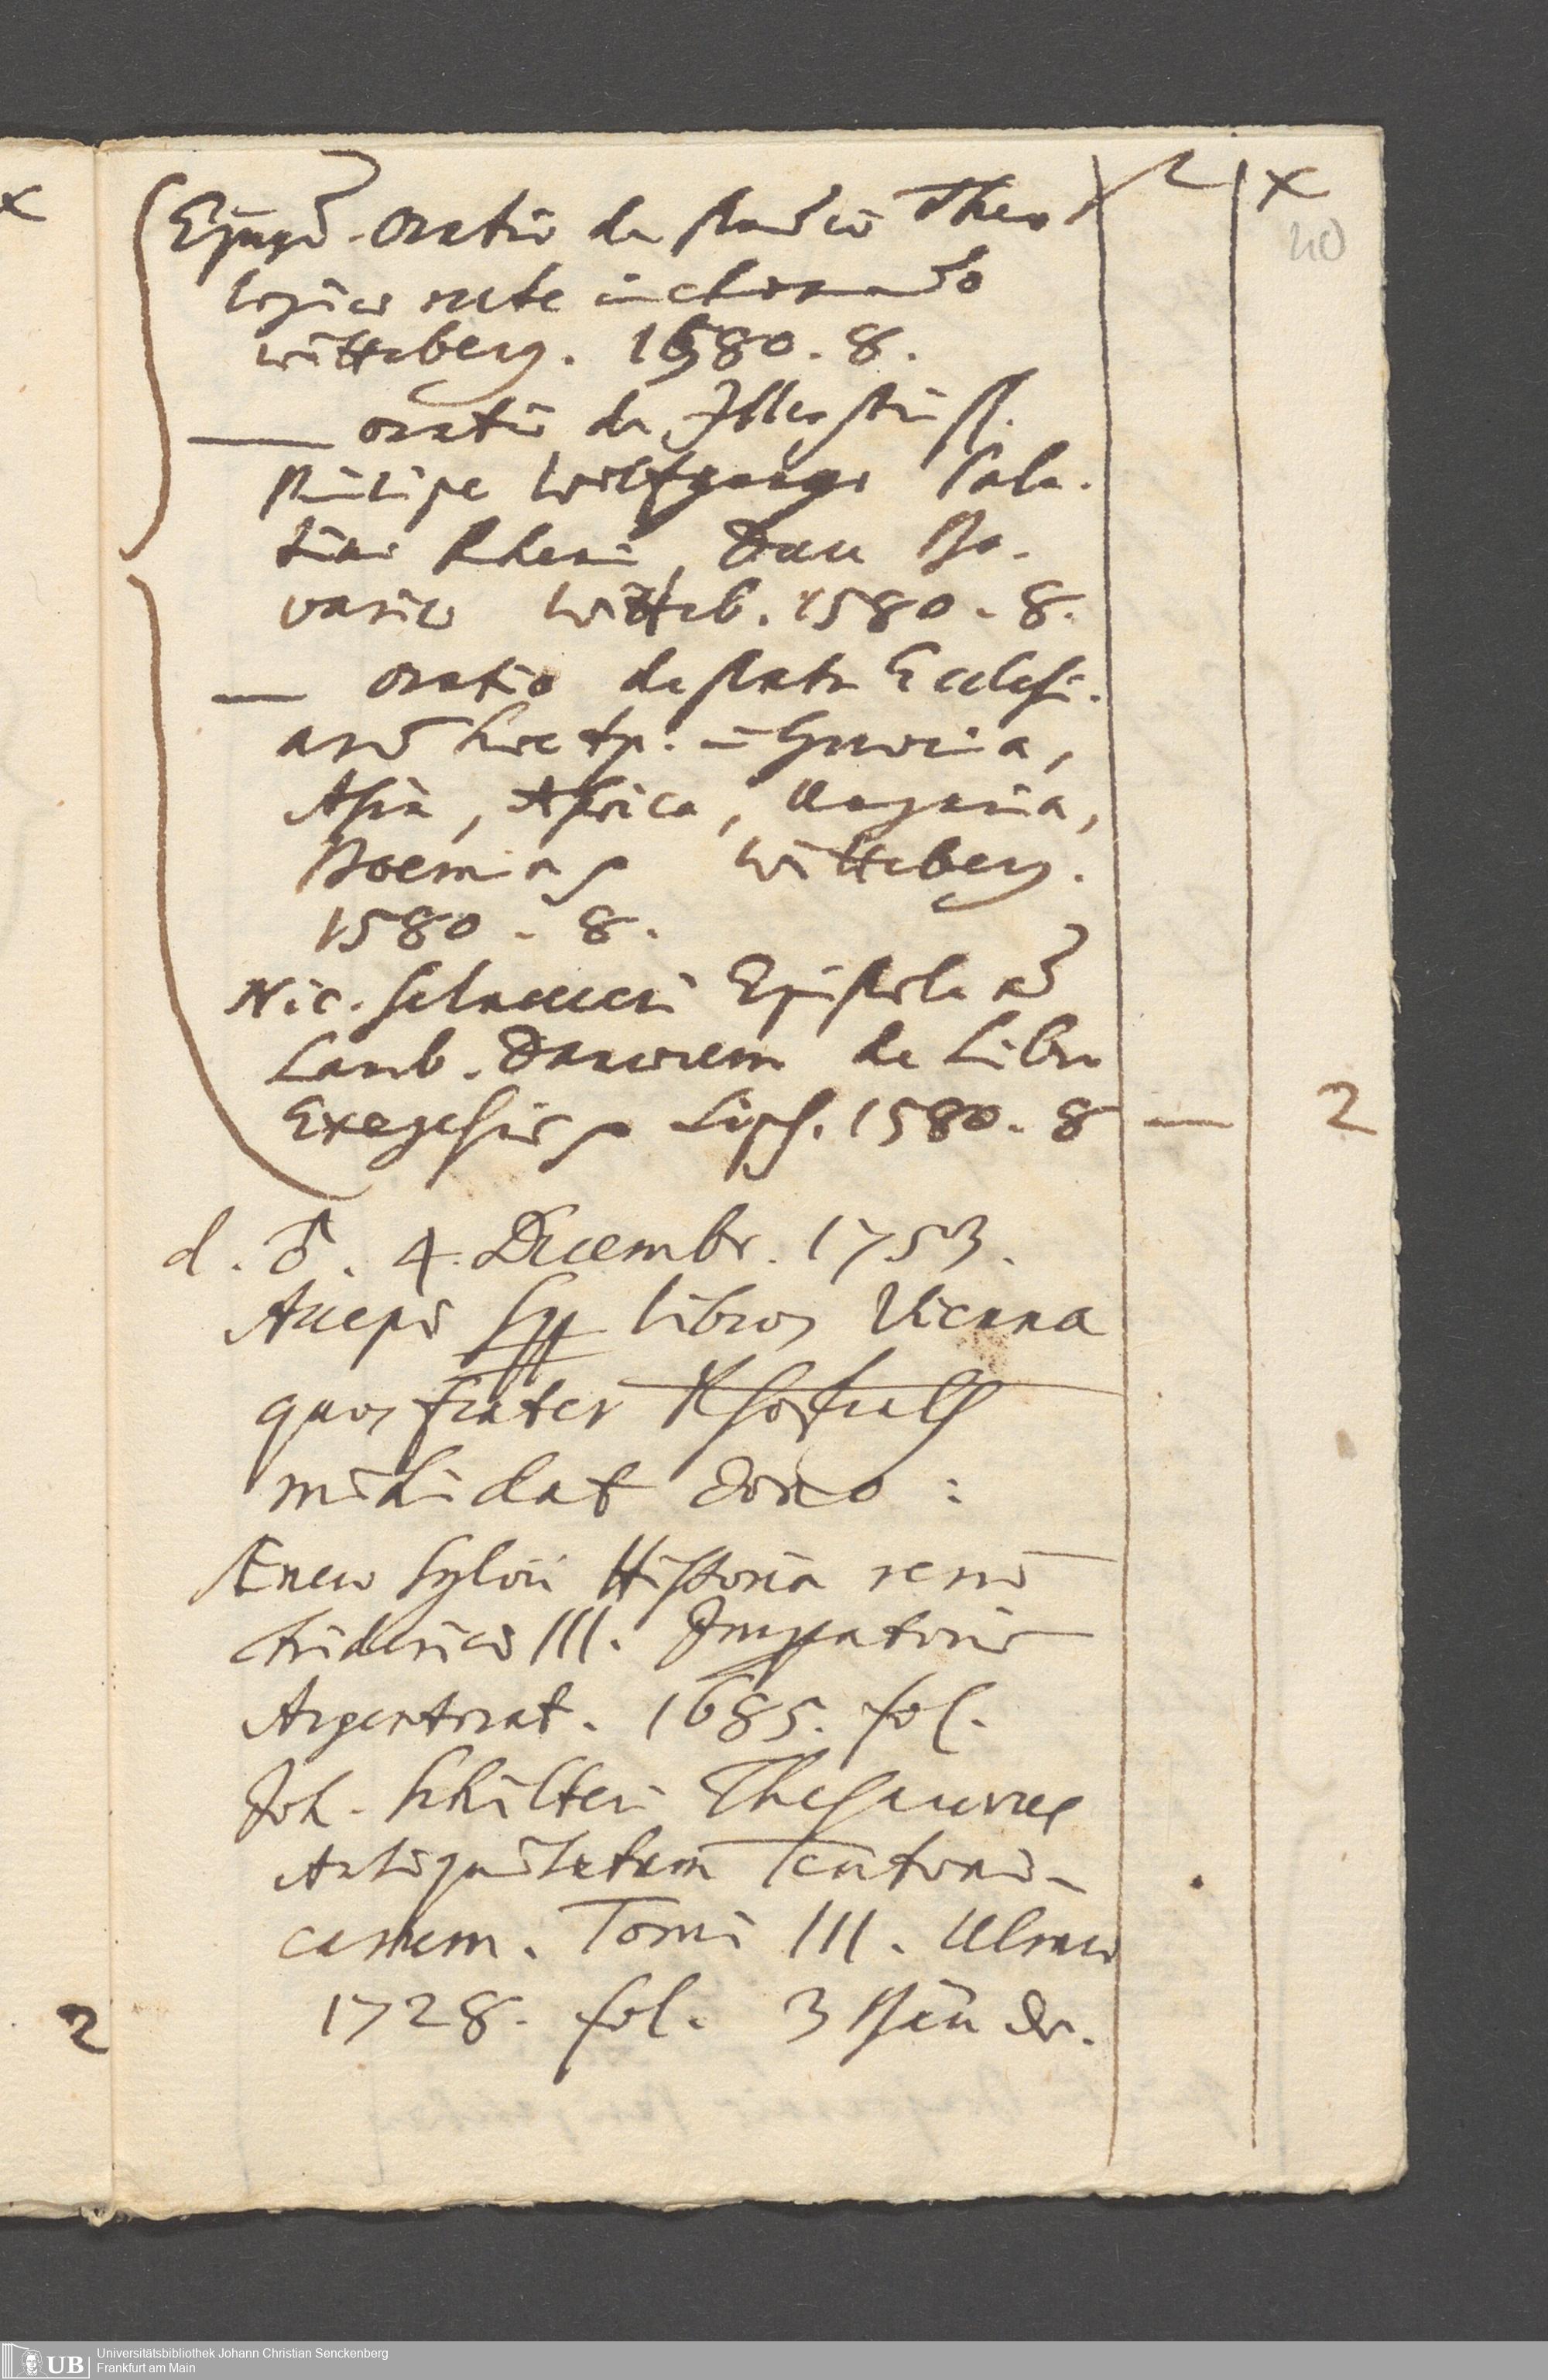 x
Ejusd. Oratio de studio Theo
logico recte inchoando
Witteberg. 1580. 8.
— oratio de Illustriss.
Principe Wolfgango Pala.
tino Rheni, Duce Ba.
varico Witteb. 1580. 8.
— oratio de statu Ecclesi.
arū hoc tp. in Graecia,
Asia, Africa, Ungaria,
Boemia Witteberg.
1580. 8.
Nic. Selnecceri Epistola ad
Lamb. Danaeum de Libro
Exegesis Lips. 1580. 8 — 2
d. ♂. 4. Decembr. 1753.
Accepi libros Vienna
quos frater
mihi dat dono:
Æneae Sylvii Historia rerū
Friderici III. Imperatoris
Argentorat. 1685. fol.
Joh. Schilteri Thesaurus
Antiquitatum Teutoni-
carum. Tomi III. Ulmae
1728. fol. 3 Bände.
x
40
x
2
UB
Universitätsbibliothek Johann Christian Senckenberg
Frankfurt am Main